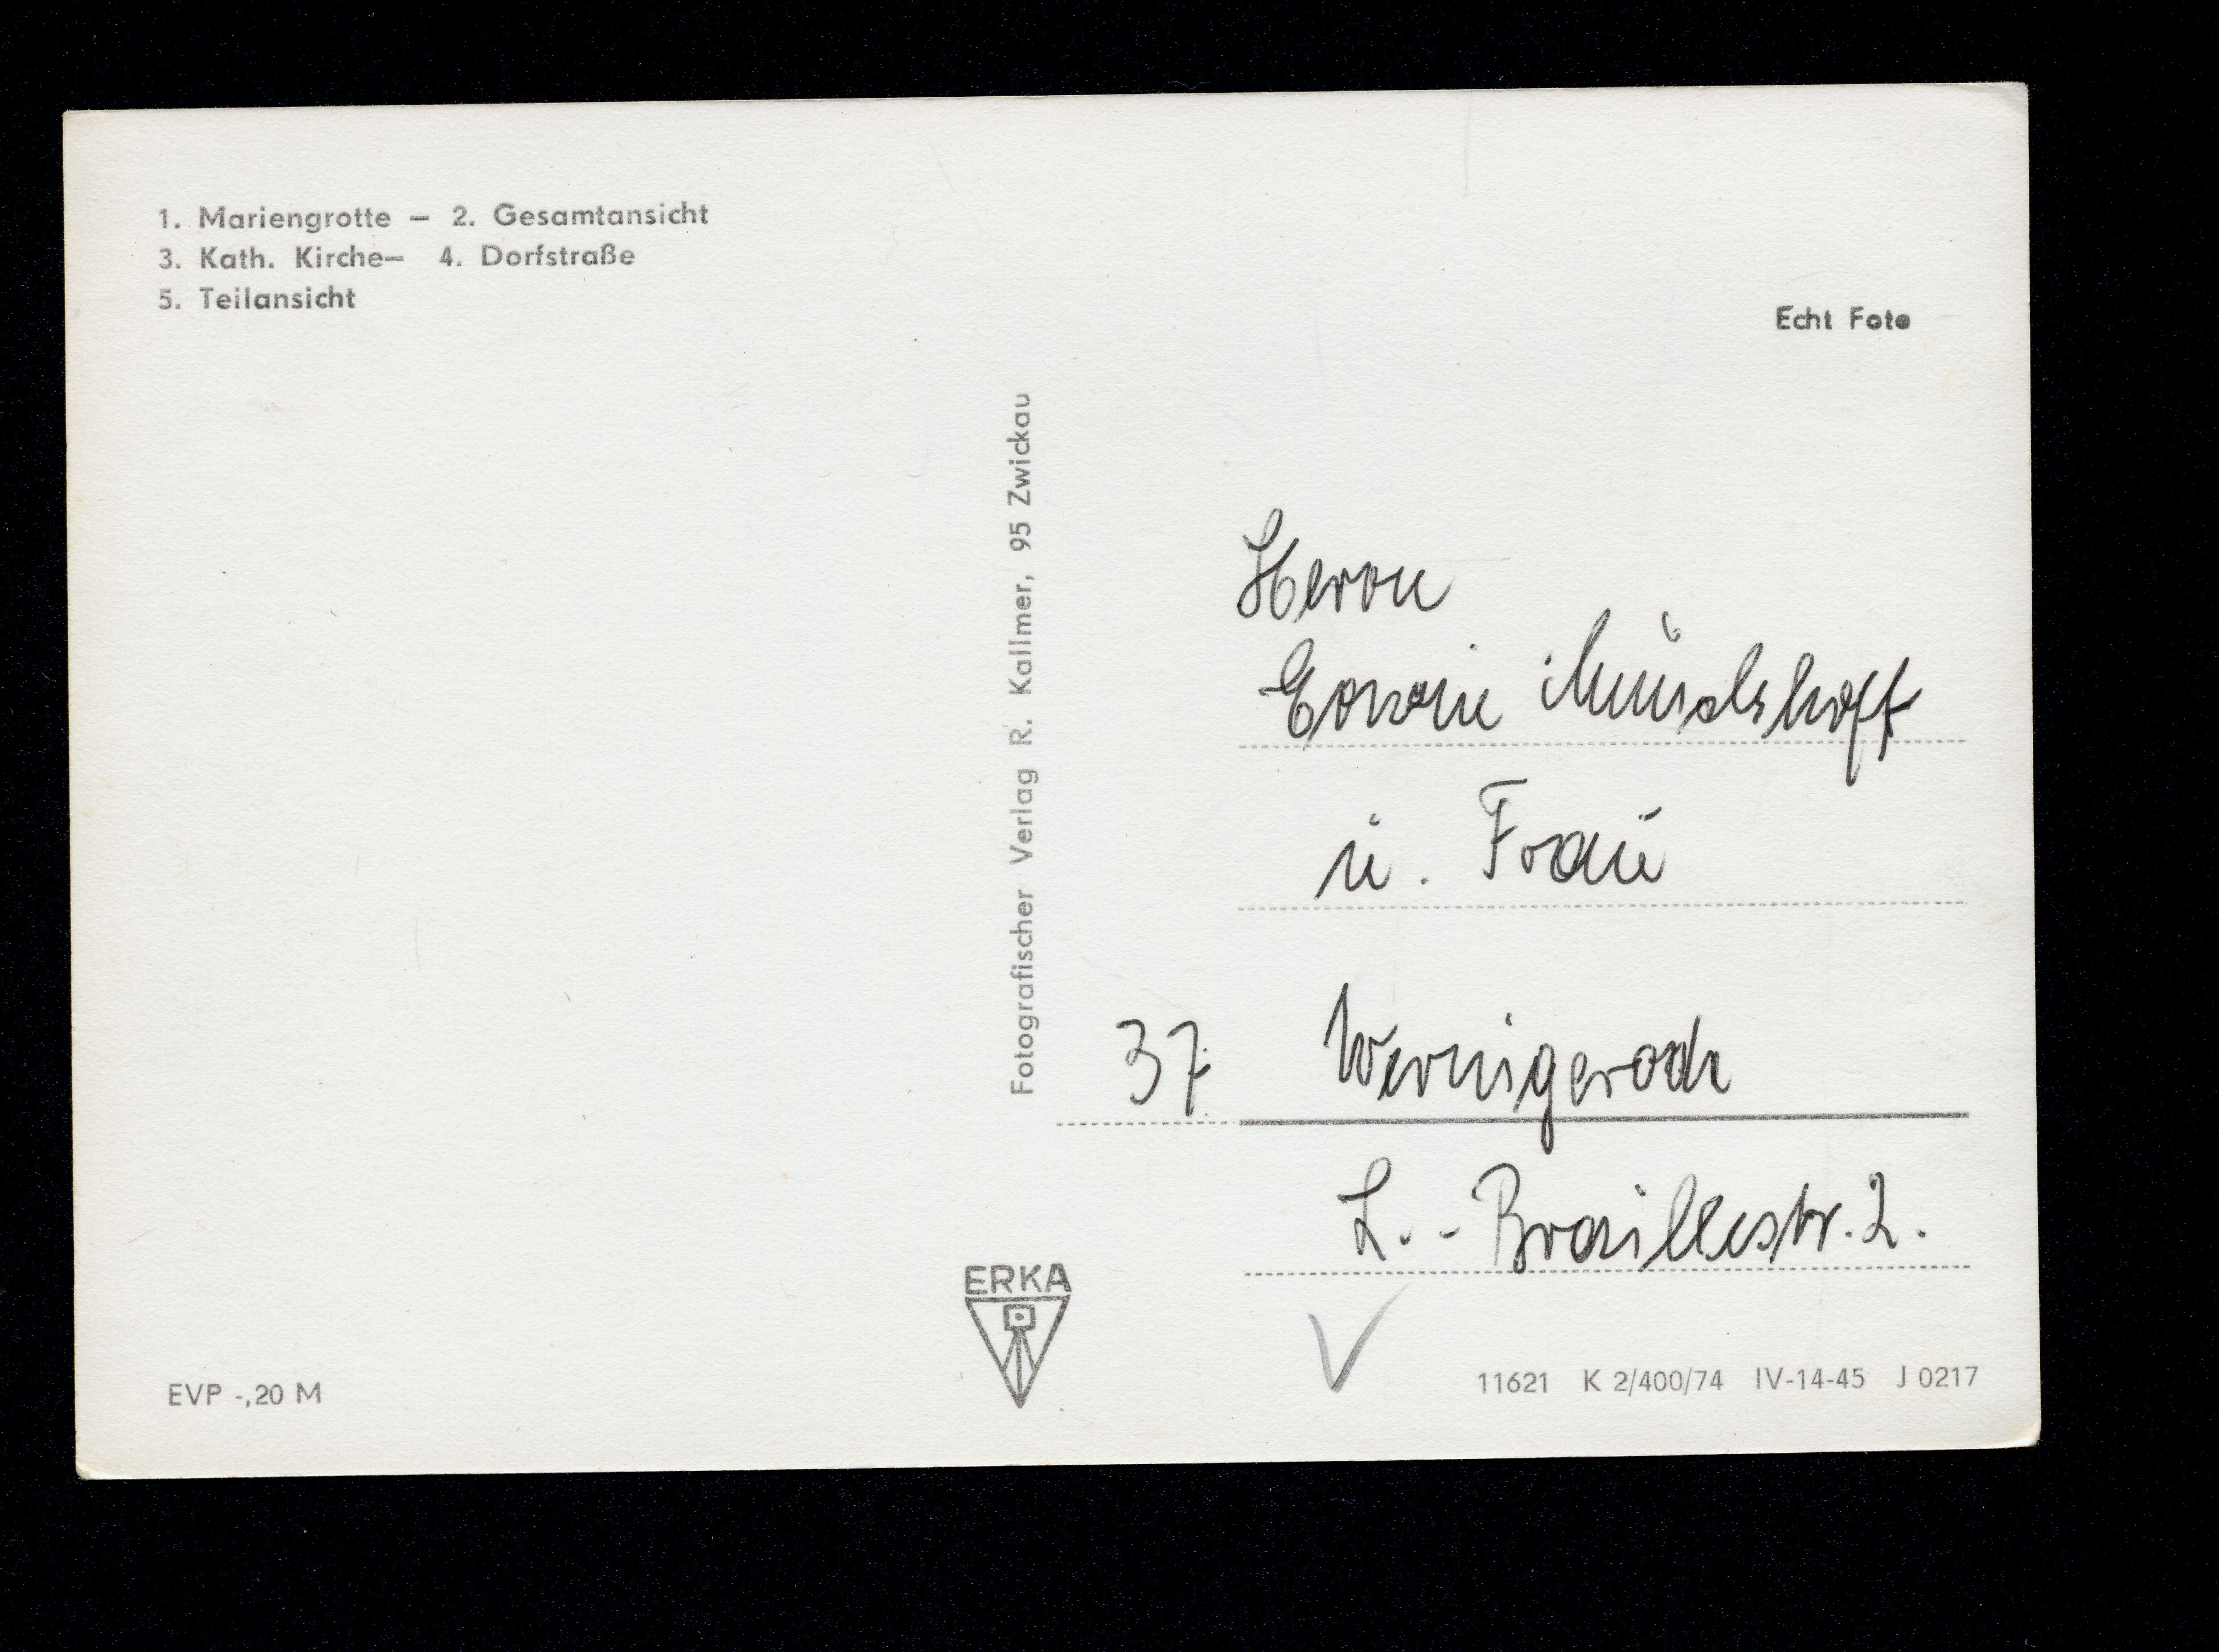 1. Mariengrotte – 2. Gesamtansicht
3. Kath. Kirche– 4. Dorfstraße
5. Teilansicht
Echt Foto
Fotografischer Verlag R. Kallmer, 95 Zwickau
Herrn
u. Frau
37 Wernigerode
L.-Braillestr. 2.
ERKA
EVP -,20 M
11621 K 2/400/74 IV-14-45 J 0217